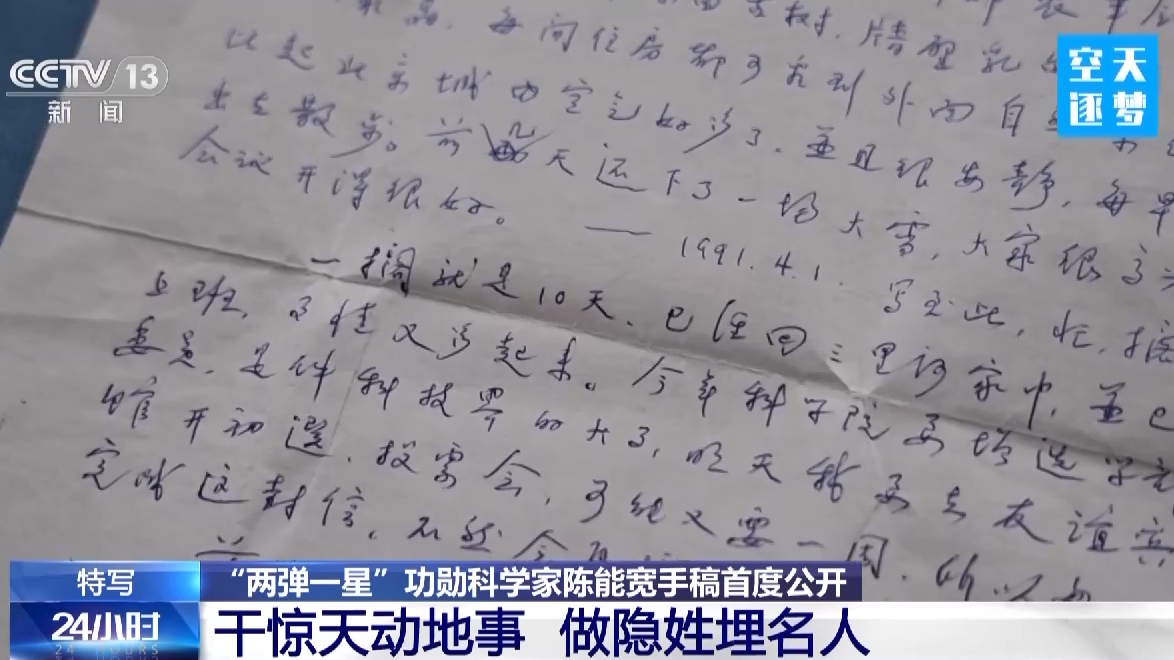 CCTV 13
新闻
空天
逐梦
每间住房都可看到外面自
比起北京城内空气好多了，并且很安静，每早
出去散步。前几天还下了一场大雪，大家很高兴
会议开得很好。 —— 1991.4.1. 写至此，忙，搁
一搁就是10天，已经回三里河家中，並已
上班，事情又多起来。今年科学院要增选学部
委员，是件科技界的大事，明天我要去友谊宾
馆开初选，投票会，可能又要一周，所以
完成这封信，不然会
特写
“两弹一星”功勋科学家陈能宽手稿首度公开
24小时
24 HOURS
干惊天动地事 做隐姓埋名人